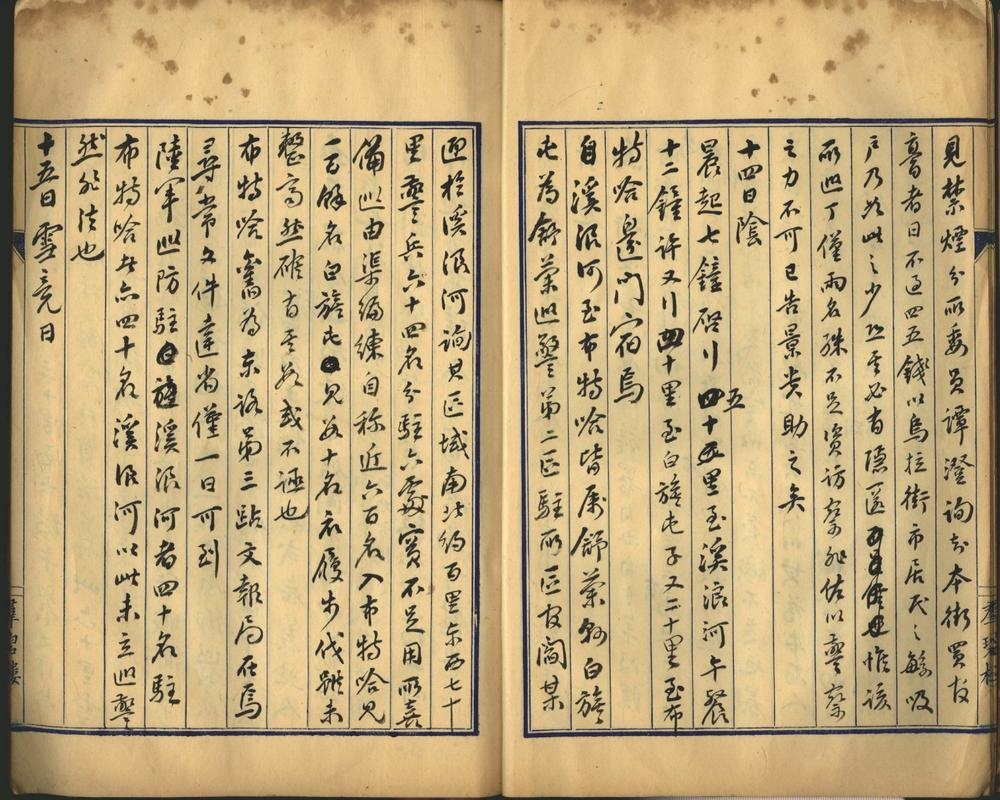 見禁煙分所委員譚澄詢知本街買膏
膏者日不過四五錢以烏拉街市居民之繁吸
戶乃如此之少然其必有隱匿也惟該
所巡丁僅兩名殊不足資訪察非佐以警察
之力不可已告景崇助之矣
十四日陰
晨起七鐘啓行四十五里至溪浪河午餐
十二鐘許又行四十里至白旗屯子又二十里至布
特哈邊門宿焉
自溪浪河至布特哈皆屬舒蘭縣白旗
屯為舒蘭巡警第二區駐所區官閻某
迎於溪浪河詢其區域南北約百里东西七十
里警兵六十四名分駐六處實不足用所喜
備巡由渠編練自称近六百名入布特哈見
一百餘名白旗屯見数十名衣履步伐雖未
整齊然確有其数或不誣也
布特哈舊為东路第三站文報局在焉
尋常文件達省僅一日可到
陸軍巡防駐溪浪河者四十名駐
布特哈者亦四十名溪浪河以此未立巡警
然非法也
十五日雪竟日